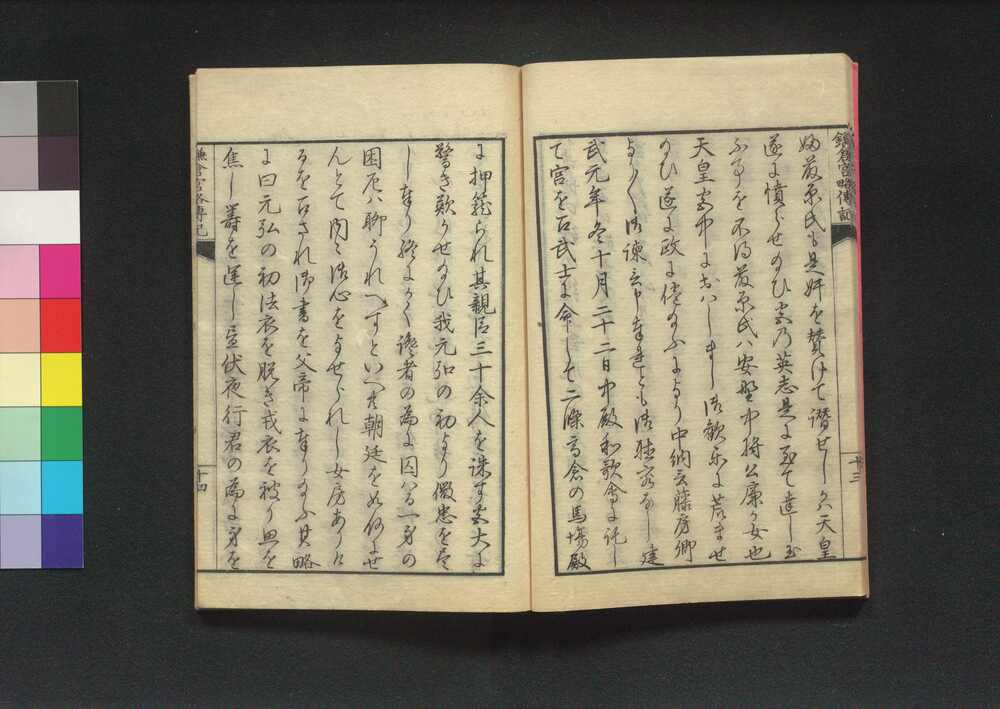 鎌倉宮略傳記
婦藤原氏も是奸を賛けて譖せしかハ天皇
遂に憤らせ玉ひ宮乃英志是に至て達し玉
ふ事を不得藤原氏ハ安野中将公廉の女也
天皇宮中におハしまし
御歓楽に荒ませ
玉ひ遂に政に倦玉ふにより中納言藤房卿
よりよく御諫言申奉れとも御聴容なし建
武元年冬十月二十二日中殿和歌會に託し
て宮を召武士に命して二條高倉の馬場殿
十三
に押籠られ其親臣三十余人を誅す宮大に
驚き歎かせ玉ひ我元弘の初より微忠を尽
し奉り終にかく讒者の為に囚ハる一身の
困厄ハ聊うれへすといへ共朝廷を如何にせ
んとて内々御心をよせられし女房あり
るを召され御書を父帝に奉り玉ふ其略
に曰元弘の初法衣を脱き戎衣を被り思を
焦し籌を運し昼伏夜行君の為に身を
鎌倉宮略傳記
十四